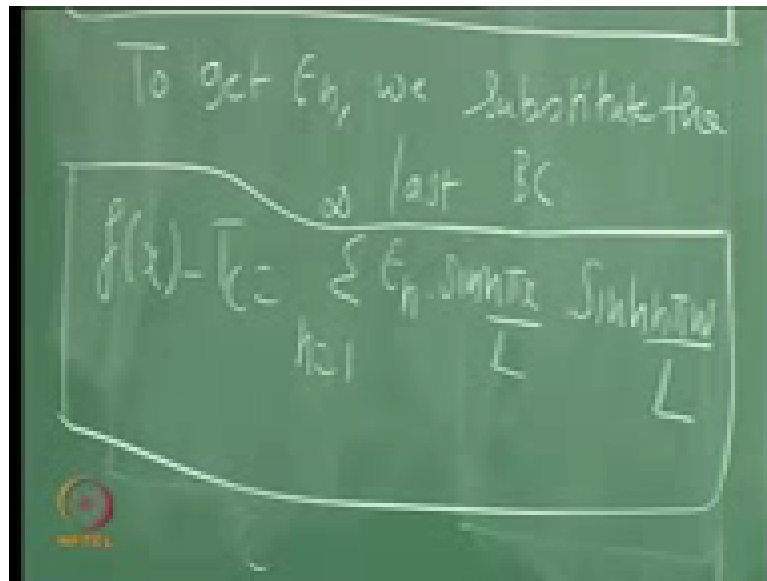 To get En, we substitute the
last BC
f(x) - Tc = ∞ Σ n=1 En. Sin nπx/L Sinh nπW/L
NPTEL